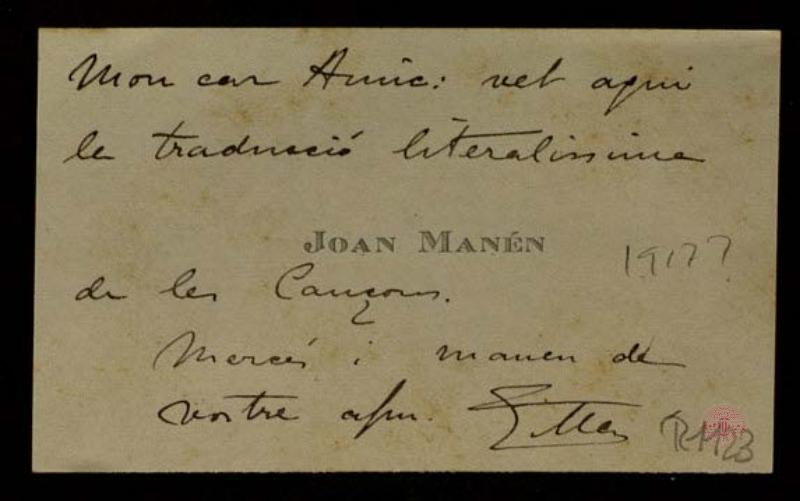 Mon car Amic: vet aqui
la traducció literalissima
JOAN MANÉN
1917?
de les Cançons.
Mercés i manen de
vostre afm.
R1123